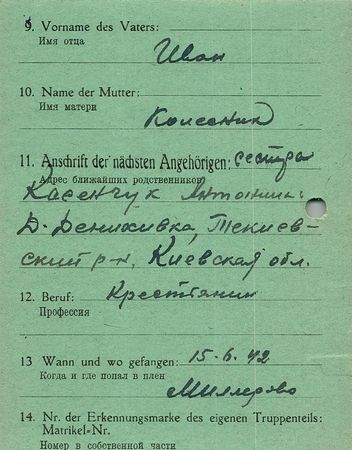 9. Vorname des Vaters:
Имя отца
Иван
10. Name der Mutter:
Имя матери
Колесник
11. Anschrift der nächsten Angehörigen: сестра
Адрес ближайших родственников
Касенчук Антонин
Д. Денихивка, Текиев-
ский р-н, Киевская обл.
12. Beruf: Крестьянин
Профессия
13 Wann und wo gefangen: 15.6.42
Когда и где попал в плен
Миллерово
14. Nr. der Erkennungsmarke des eigenen Truppenteils:
Matrikel-Nr.
Номер в собственной части